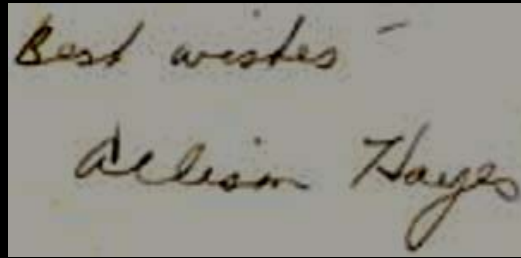 Best wishes -
Allison Hayes